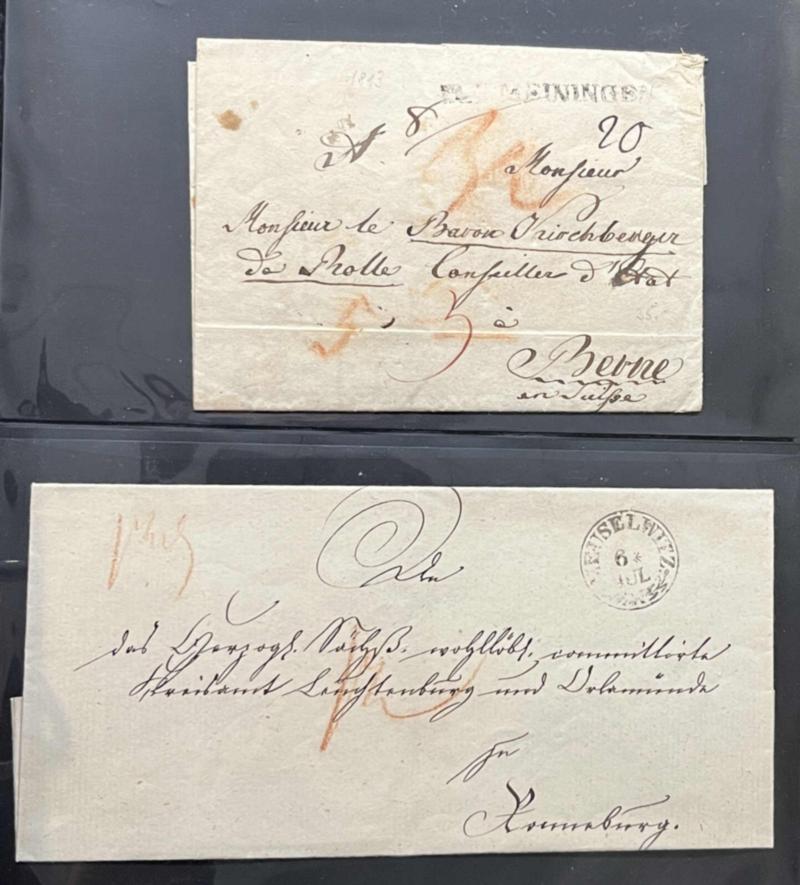 1813
MEININGEN
A 8 20
Monsieur
Monsieur le Baron Kirchberger
de Rolle Conseiller d'Etat
5 à
Berne
en Suisse
MEUSELWITZ
6 *
JUL
An
das Herzogl. Sächß. wohllöbl. committirte
Kreisamt Leuchtenburg und Orlamünde
zu
Ronneburg.